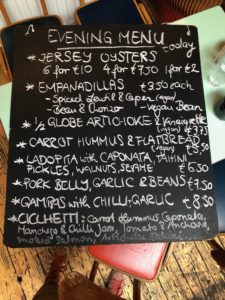 EVENING MENU
today
* JERSEY OYSTERS
6 for £10 4 for £7.50 1 for £2
* EMPANADILLAS £3.50 each
- Spiced Lentil & Caper (vegan)
- Bean & Chorizo - Vegan Bean
* ½ GLOBE ARTICHOKE & Vinaigrette
(vegan) £3.75
* CARROT HUMMUS & FLATBREAD
(vegan) £5.50
* LADOPITA with CAPONATA, TAHINI
PICKLES, WALNUTS, £6.50
* PORK BELLY, GARLIC & BEANS £7.50
* GAMBAS with CHILLI, GARLIC £8.50
* CICCHETTI: Carrot Hummus, Caponata,
Manchego & Chilli Jam, Tomato & Anchovy,
Smoked Salmon, Artichoke